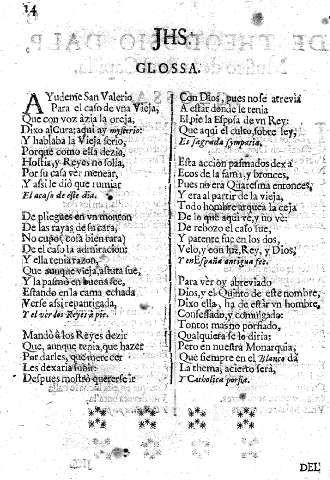 14
JHS.
GLOSSA.
AYudeme San Valerio
Para el caso de vna Vieja,
Que con voz àzia la oreja,
Dixo al Cura; aqui ay mysterio:
Y hablaba la Vieja serio,
Porque como essa dezia,
Hostia, y Reyes no solia,
Por su casa ver menear,
Y assi le diò que rumiar
El acaso de este dia.
De pliegues en vn monton
De las rayas de su cara,
No cupo (cosa bien rara)
De el caso la admiracion:
Y ella tenia razon,
Que aunque vieja, astuta fue,
Y la pasmò en buena fee,
Estando en la cama echada
Verse assi repantigada,
Y el ver los Reyes à pie.
Mandò à los Reyes dezir
Que, aunque tenia, que hazer
Por darles, que merecer
Les dexaria subir:
Despues mostrò quererse ir
Con Dios, pues no se atrevia
A estàr donde le tenia
El pie la Esposa de vn Rey:
Que aqui el culto, sobre ley,
Es sagrada sympatia.
Esta accion pasmados dexa
Ecos de la fama, y bronces,
Pues no era Quaresma entonces,
Y era al partir de la vieja,
Todo hombre arquea la ceja
De lo que aqui vè, y no vè:
De rebozo el caso fue,
Y parente fue en los dos,
Velo, y con luz, Rey, y Dios,
Y en España antigua fee.
Para vèr oy abreviado
Dios, y el Quinto de este nombre,
Dixo ella, ha de estàr vn hombre,
Confessado, y comulgado:
Tonto: mas no porfiado,
Qualquiera se lo diria:
Pero en nuestra Monarquia,
Que siempre en el Blanco dà
La thema, acierto serà,
Y Catholica porfia.
DEL